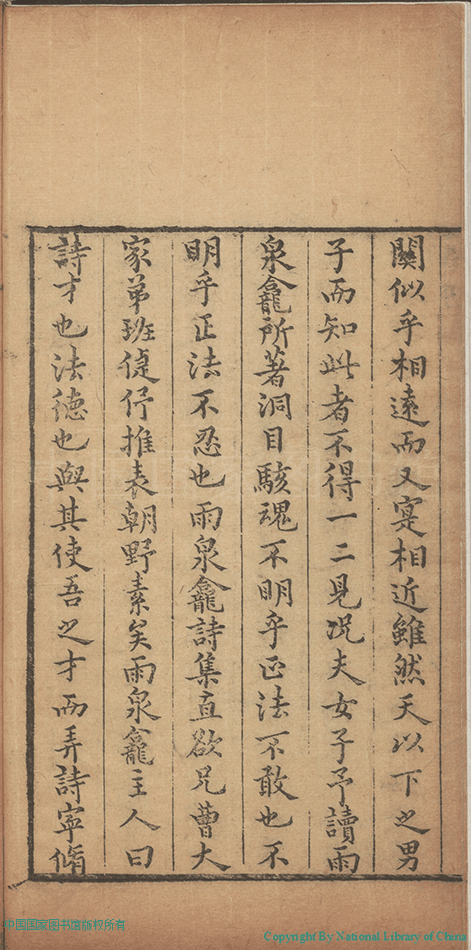 關似乎相遠而又寔相近雖然天以下之男
子而知此者不得一二見况夫女子予讀雨
泉龕所著洞目駭魂不明乎正法不敢也不
明乎正法不忍也雨泉龕詩集直欲兄曹大
家弟班倢伃推表朝野素矣雨泉龕主人曰
詩才也法德也與其使吾之才而弄詩寧脩
中国国家图书馆版权所有
Copyright By National Library of China